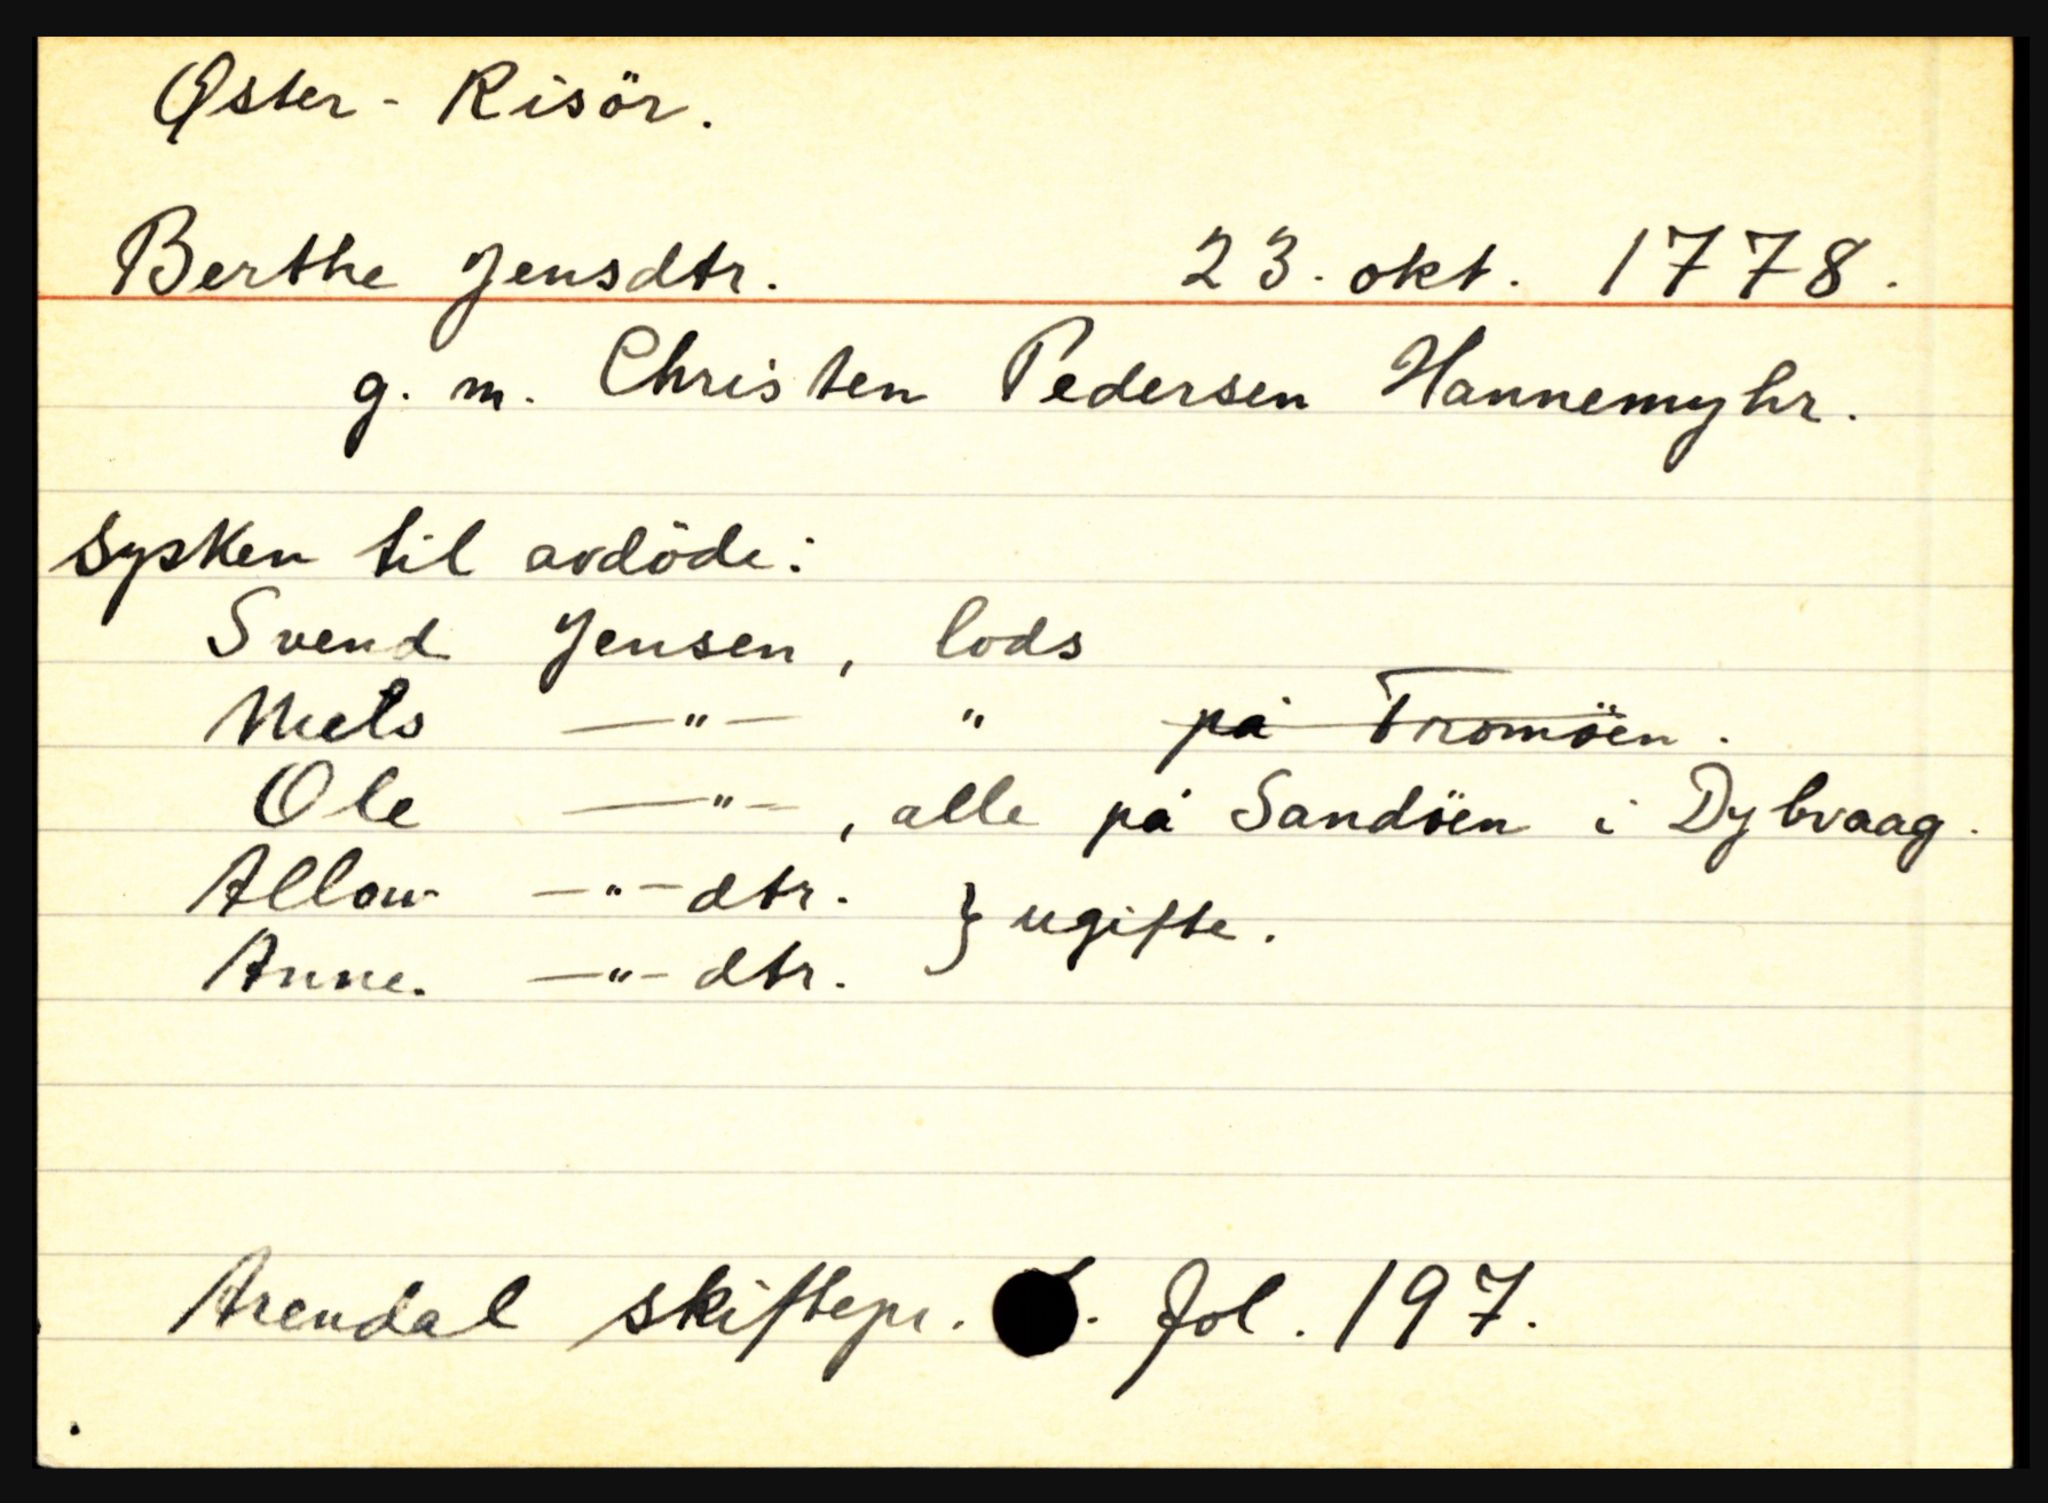 Øster - Risör.
Berthe Jensdtr. 23. okt. 1778.
g. m. Christen Pedersen Hannemyhr.
Sysken til avdöde:
Svend Jensen, lods
Niels —"— " på Tromöen.
Ole —"—, alle på Sandöen i Dybvaag.
—"— dtr. } ugifte.
Anne. —"— dtr.
Arendal skiftepr. . fol. 197.